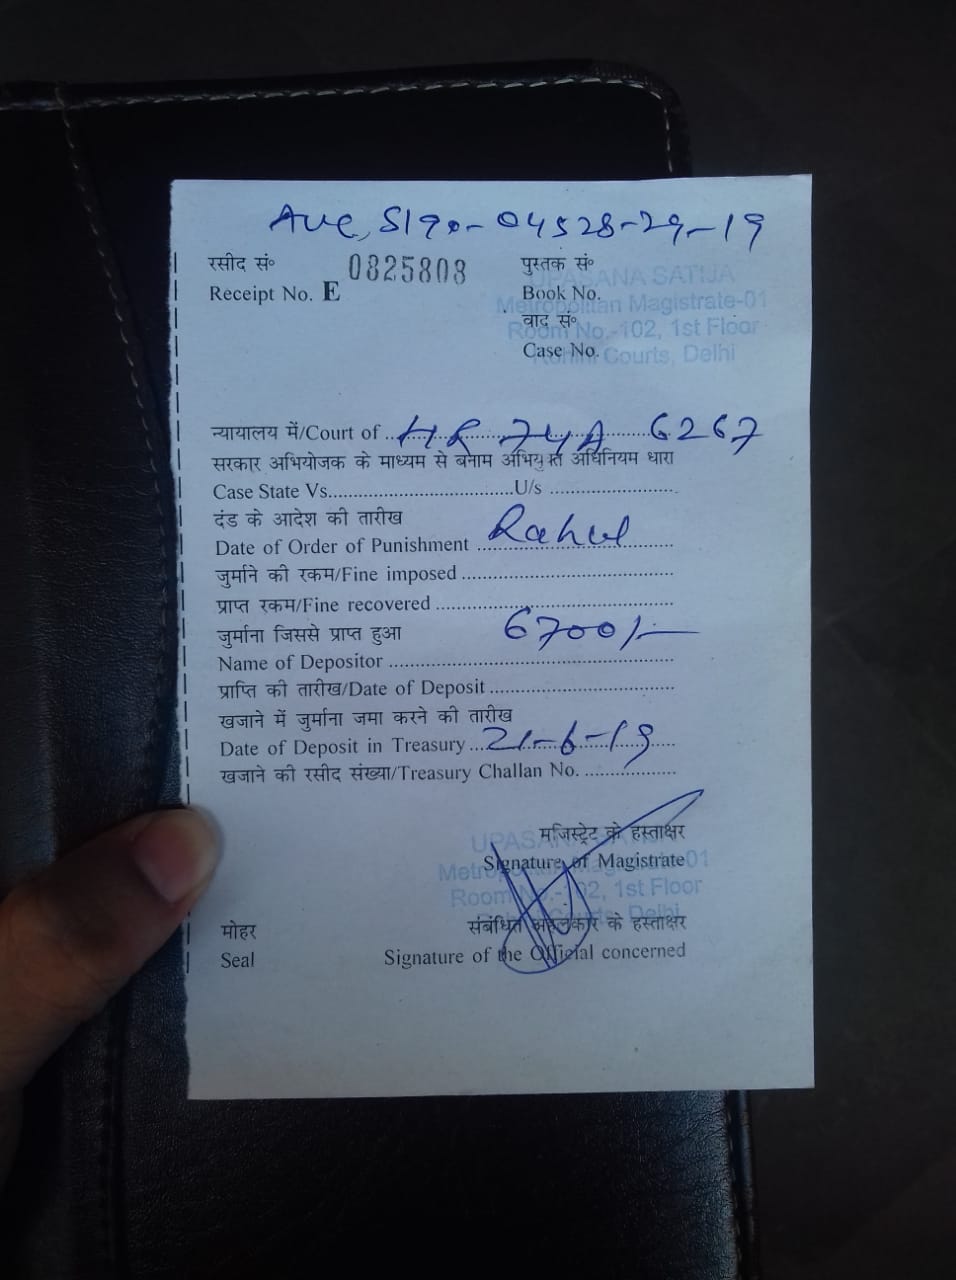 04528-29-19
रसीद सं० 0825808 पुस्तक सं०
Receipt No. E Book No.
UPASANA SATIJA
Metropolitan Magistrate-01
वाद सं०
Room No.-102, 1st Floor
Case No.
Rohini Courts, Delhi
न्यायालय में/Court of ..HR 74A 6267
सरकार अभियोजक के माध्यम से बनाम अभियुक्त अधिनियम धारा
Case State Vs..................................U/s .......................
दंड के आदेश की तारीख
Date of Order of Punishment Rahul
जुर्माने की रकम/Fine imposed .......................................
प्राप्त रकम/Fine recovered ...........................................
जुर्माना जिससे प्राप्त हुआ 6700/-
Name of Depositor .....................................................
प्राप्ति की तारीख/Date of Deposit ..................................
खजाने में जुर्माना जमा करने की तारीख
Date of Deposit in Treasury ...21-6-19
खजाने की रसीद संख्या/Treasury Challan No. .................
मजिस्ट्रेट के हस्ताक्षर
Signature of Magistrate
मोहर संबंधित अहलकार के हस्ताक्षर
Seal Signature of the Official concerned